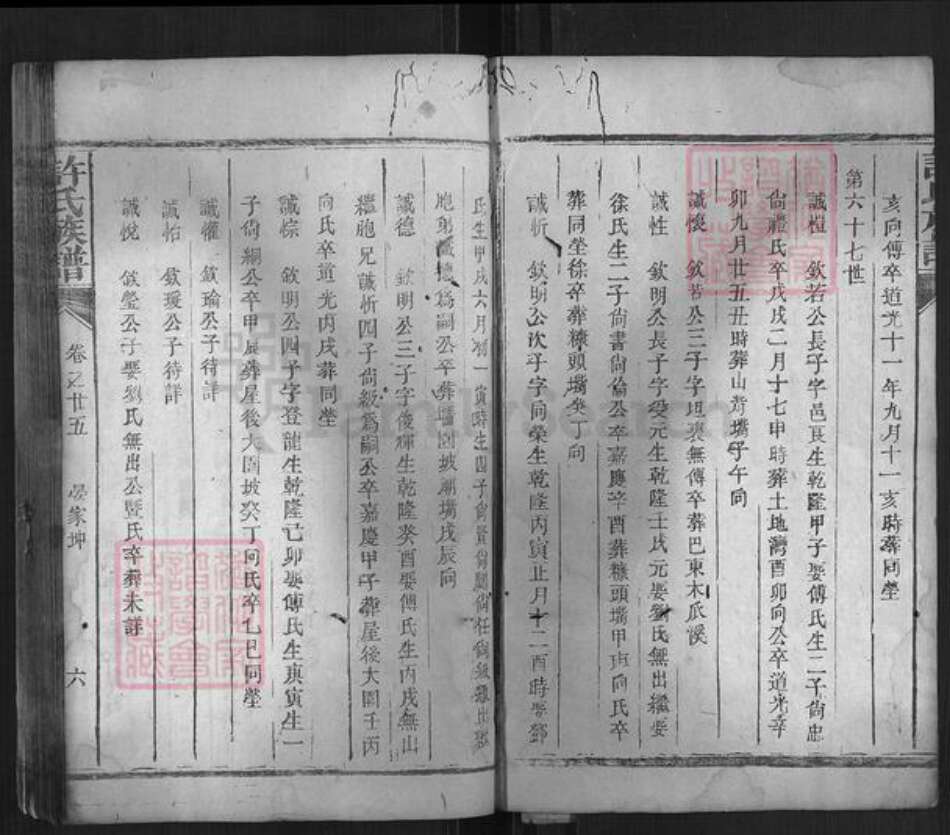 亥向傅卒道光十一年九月十一亥時葬同塋
第六十七世
誠愷 欽若公長子字邑良生乾隆甲子娶傅氏生二子尙忠
尙禮氏卒戊戌二月十七申時葬土地灣酉卯向公卒道光辛
卯九月廿五丑時葬山背壪子午向
誠懷 欽若公三子字坦懷無傳卒葬巴東木瓜溪
誠性 欽明公長子字受元生乾隆壬戌元娶劉氏無出繼娶
徐氏生二子尙書尙倫公卒嘉慶辛酉葬糠頭壪甲庚向氏卒
葬同塋徐卒葬糠頭壪癸丁向
誠析 欽明公次子字向榮生乾隆丙寅正月十二酉時娶鄧
氏生甲戌六月初一寅時生四子尙賢尙尙任尙級雞出
胞弟誠德爲嗣公卒葬壪園坡廟壪戌辰向
誠德 欽明公三子字俊輝生乾隆癸酉娶傅氏生丙戌無山
繼胞兄誠析四子尙級爲嗣公卒嘉慶甲子葬屋後大園子丙
向氏卒道光丙戌葬同塋
誠棕 欽明公四子字登龍生乾隆己卯娶傅氏生庚寅生一
子尙嗣公卒甲辰葬屋後大園坡癸丁向氏卒乙巳同塋
誠懽 欽瑜公子待詳
誠怡 欽璦公子待詳
誠悅 欽瑩公子娶劉氏無出公暨氏卒葬未詳
許氏族譜
卷之廿五
晏家坤
六